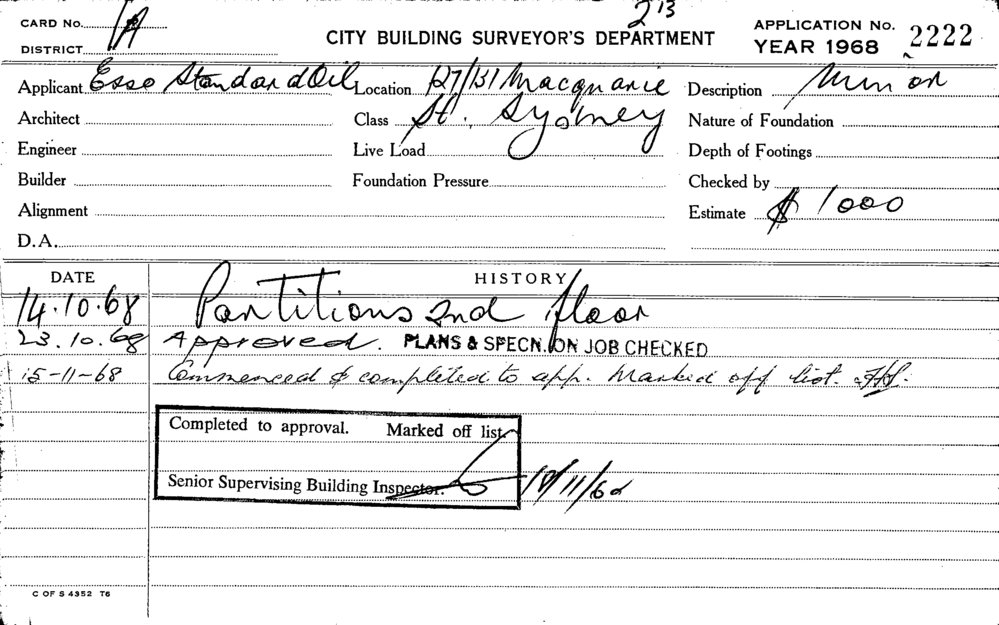 213
CARD No.
DISTRICT 1A
CITY BUILDING SURVEYOR'S DEPARTMENT
APPLICATION No. 2222
YEAR 1968
Applicant Esso Standard Oil Location 127/131 Macquarie Description Minor
Architect Class St. Sydney Nature of Foundation
Engineer Live Load Depth of Footings
Builder Foundation Pressure Checked by
Alignment Estimate $ 1000
D.A.
DATE HISTORY
14.10.68 Partitions 2nd floor
23.10.68 Approved. PLANS & SPECN. ON JOB CHECKED
15-11-68 Commenced & completed to app. Marked off list.
Completed to approval. Marked off list.
Senior Supervising Building Inspector. 18/11/68
C OF S 4352 T6